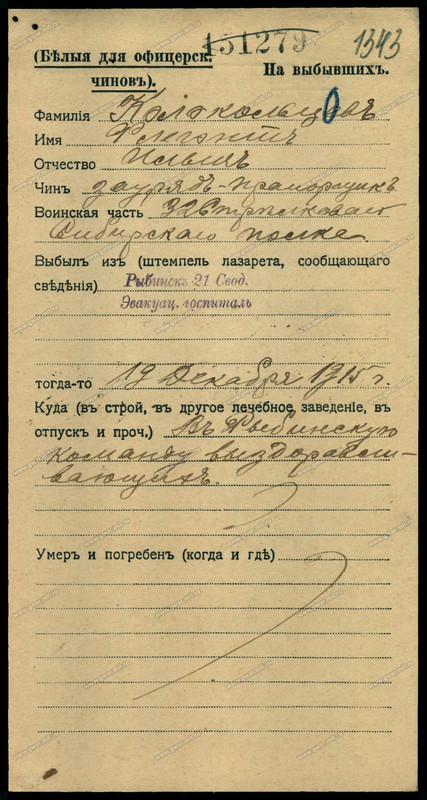 151279
1343
(Бѣлыя для офицерск. чиновъ).
На выбывшихъ.
Фамилія Колокольцовъ
Имя
Отчество Ильичъ
Чинъ заурядъ-прапорщикъ
Воинская часть 32 Стрѣлковаго
Сибирскаго полка.
Выбылъ изъ (штемпель лазарета, сообщающаго
свѣдѣнія) Рыбинскъ 21 Свод.
Эвакуац. госпиталь
тогда-то 19 Декабря 1915 г.
Куда (въ строй, въ другое лечебное заведеніе, въ
отпускъ и проч.) Въ Рыбинскую
команду выздоравли-
вающихъ.
Умеръ и погребенъ (когда и гдѣ)